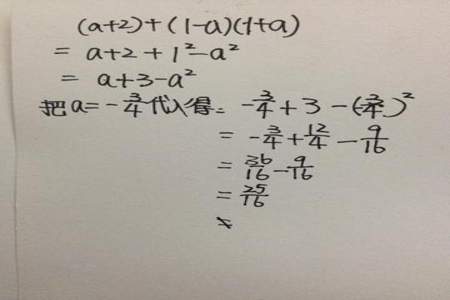 (a+2)+(1-a)(1+a)
= a+2+1²-a²
= a+3-a²
把a=-3/4代入得= -3/4+3-(-3/4)²
= -3/4+12/4-9/16
= 36/16-9/16
= 25/16
=